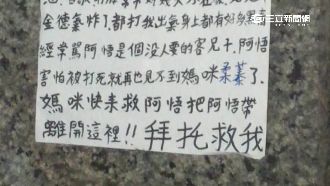 三立新聞
金德氣炸了都打我出氣身上都有好多黑青
經常罵阿悟是個沒人要的害兄卡.阿悟
害怕被打死就再也見不到媽咪柔蓁了.
媽咪快來救阿悟把阿悟帶
離開這裡!!拜托救我